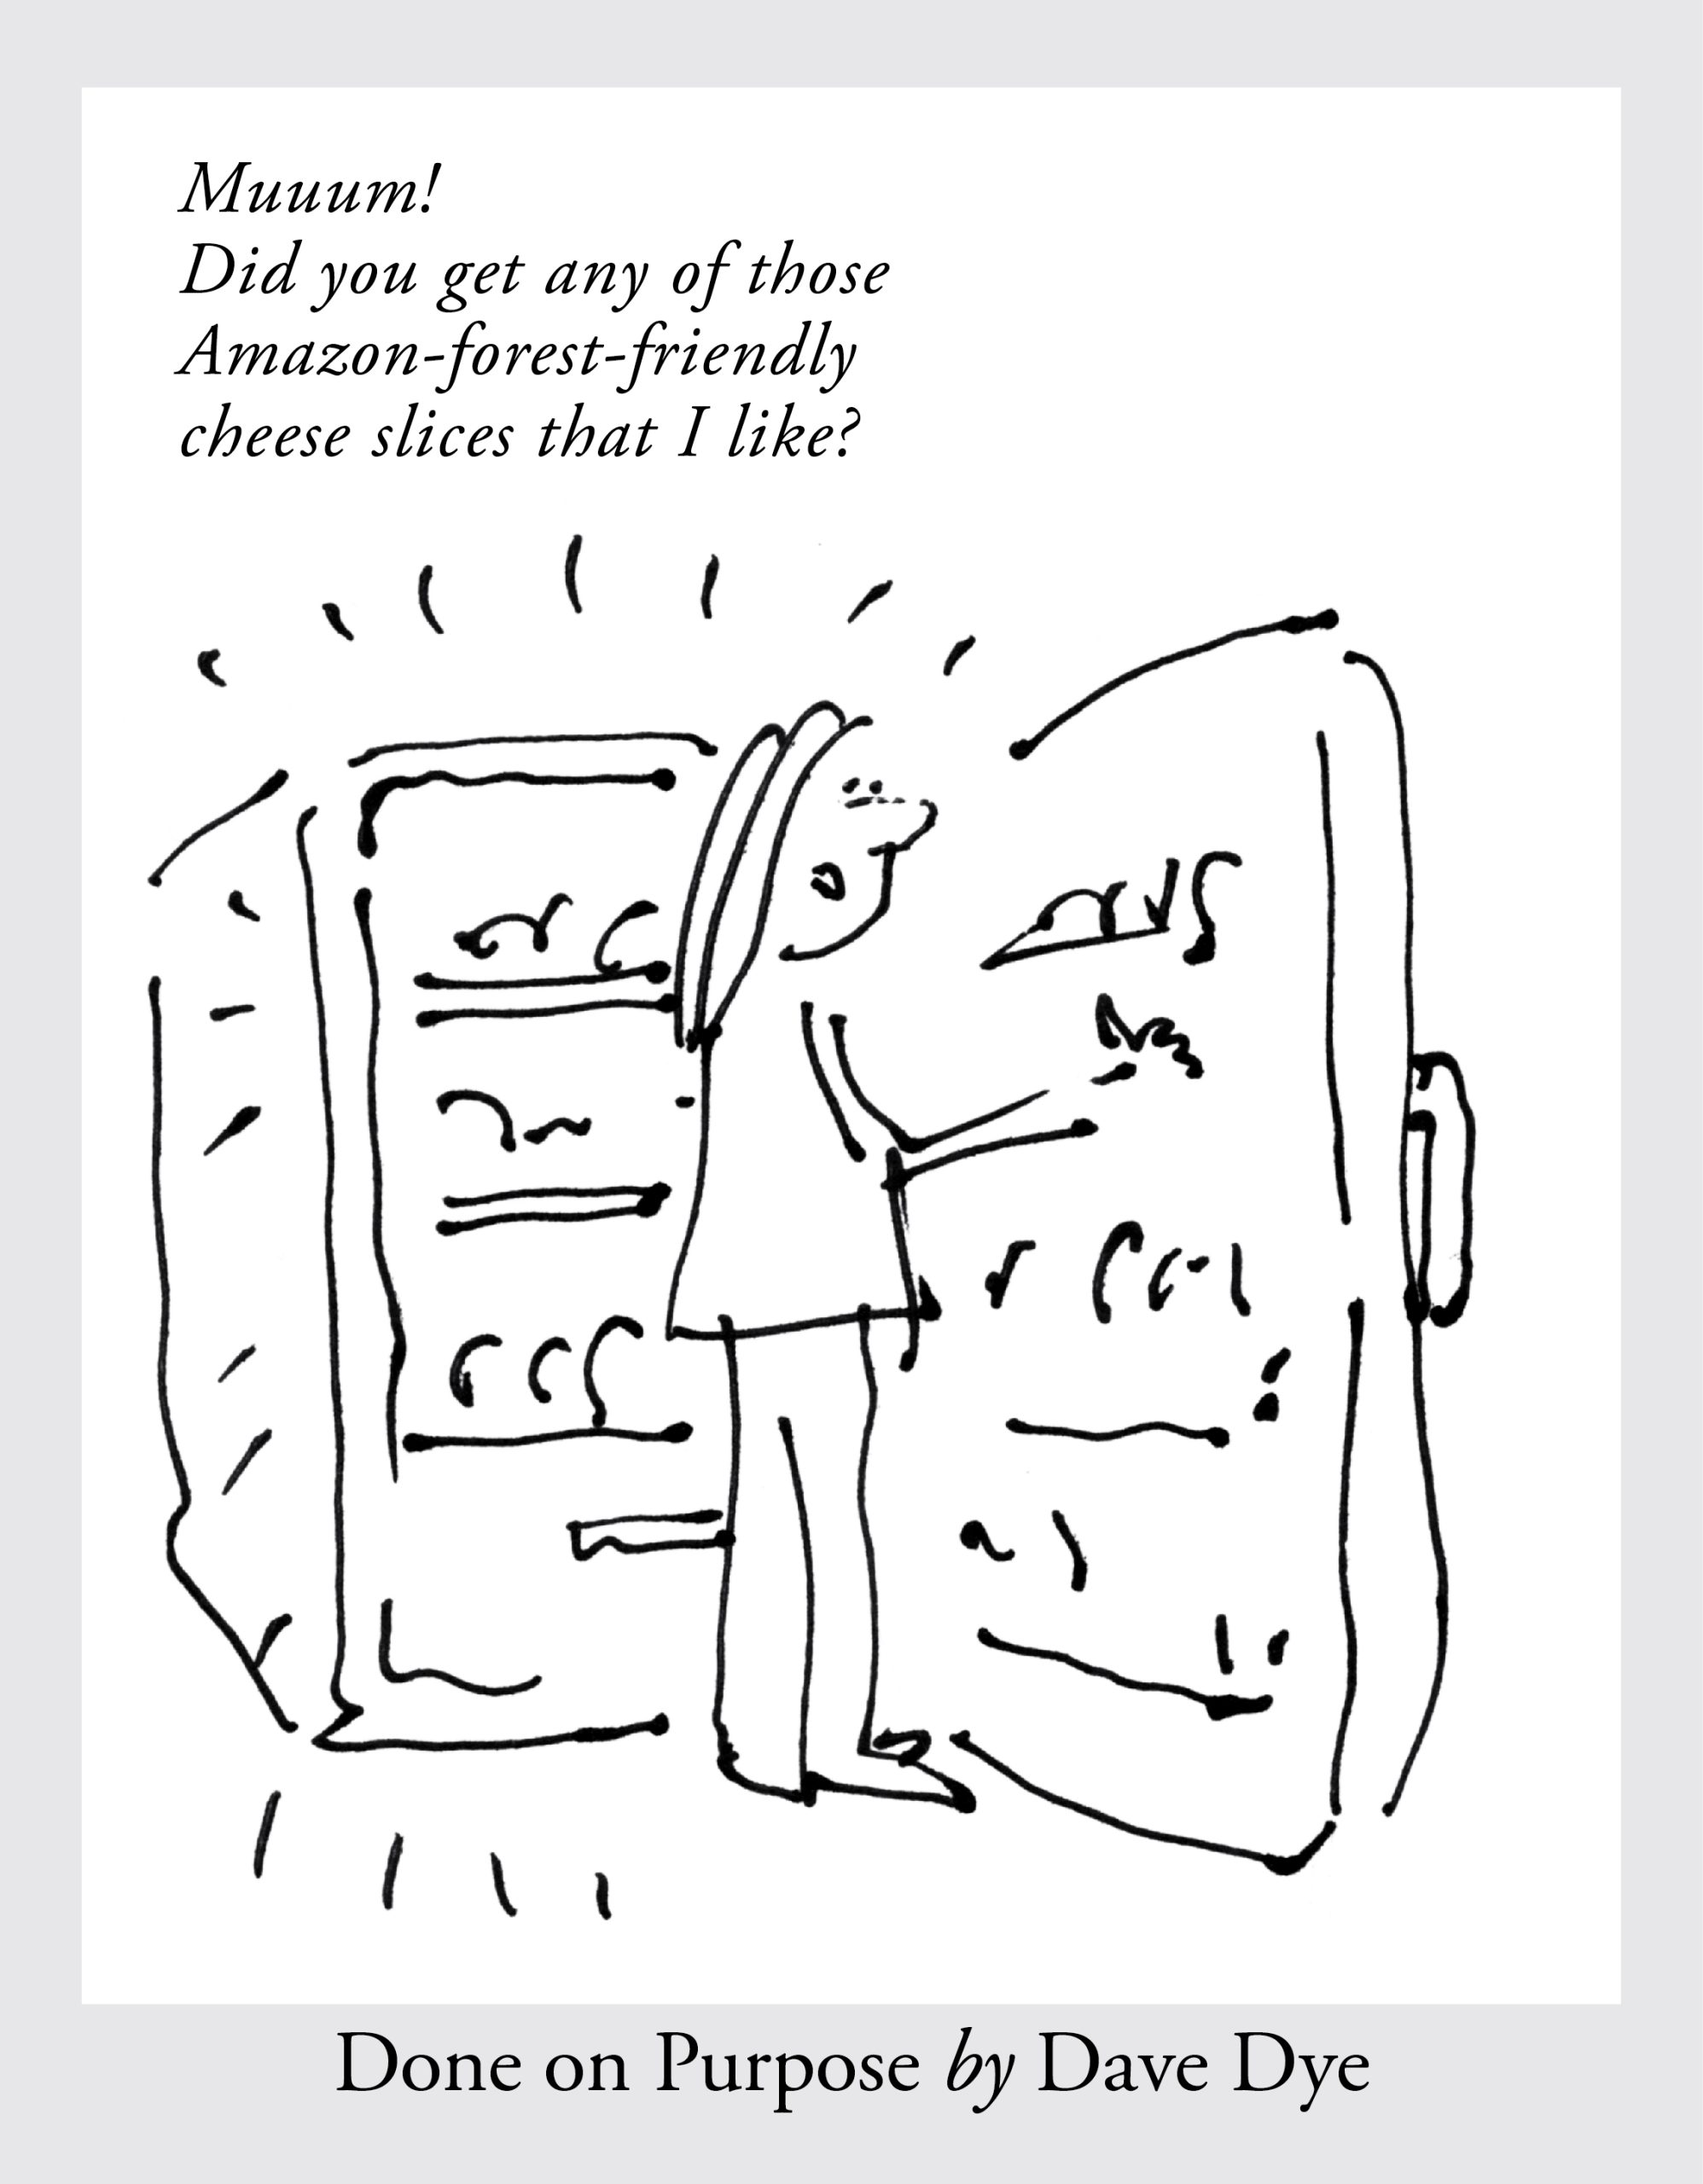 Muuum!
Did you get any of those
Amazon-forest-friendly
cheese slices that I like?
Done on Purpose by Dave Dye